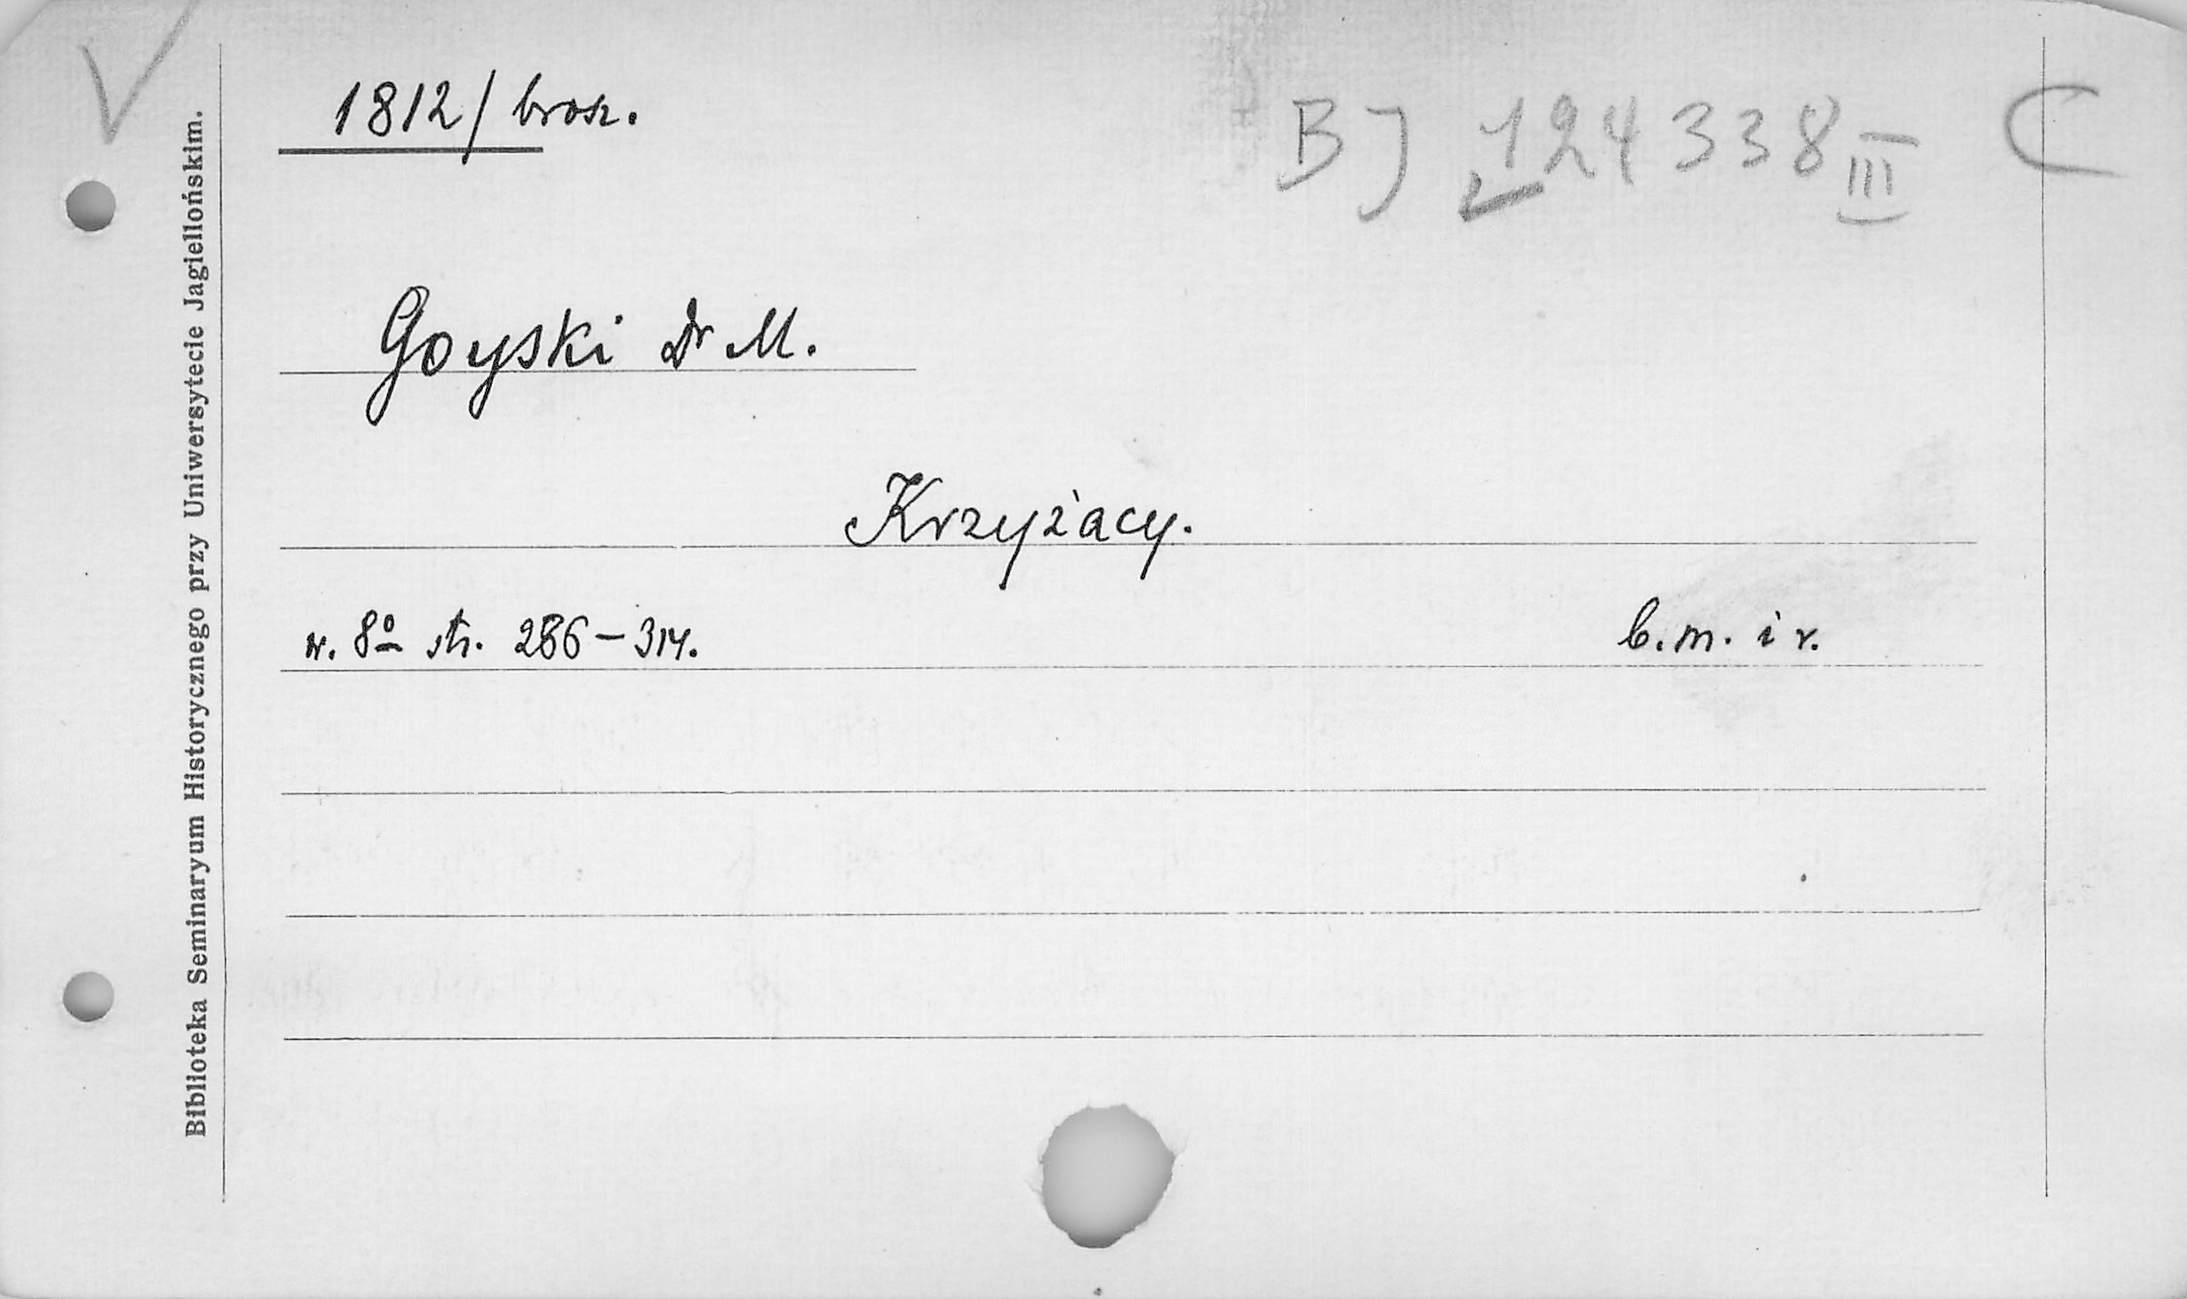 1812/ brosz.
BJ 124338 III C
Goyski Dr M.
Krzyżacy.
w. 8º str. 286-314.
b. m. i r.
Biblioteka Seminaryum Historycznego przy Uniwersytecie Jagiellońskim.